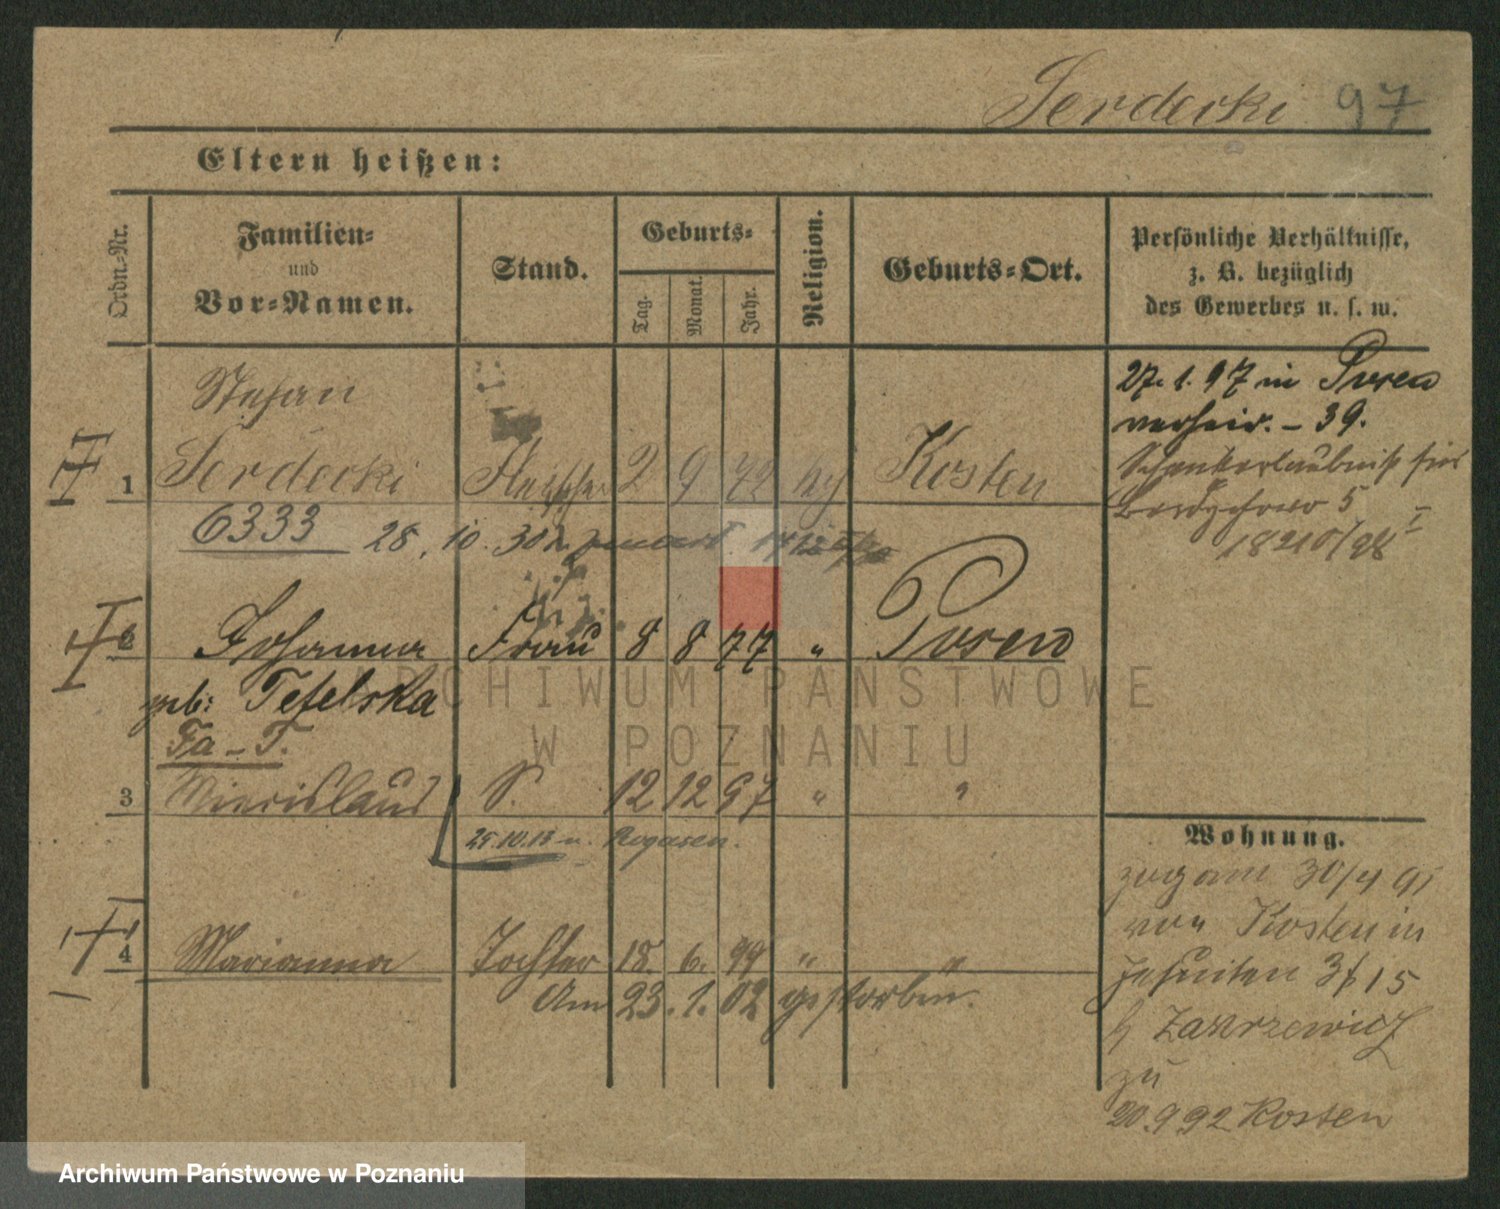 Serdecki 97
Eltern heißen:
Ordn.-Nr.
Familien-
und
Vor-Namen.
Stand.
Geburts-
Tag.
Monat.
Jahr.
Religion.
Geburts-Ort.
Persönliche Verhältnisse,
z. B. bezüglich
des Gewerbes u. s. w.
Stefan
1 Serdecki Fleischer 2 9 72 Kosten
6333 28. 10. 30
2 Johanna Frau 8 8 77 " Posen
geb: Tefelska
Fa - T.
3 Miecislaus S. 12 12 97 " "
25.10.13 n. Rogasen.
4 Marianna Tochter 18. 6. 99 " "
Am 23. 1. 02 gestorben.
27. 1. 97 in Posen
verheir. - 39.
Schankerlaubniß für
5
18210/98 I
Wohnung.
zugam 30/4 91
von Kosten in
Jesuiten 3f 15
Zakrzewicz
zu
20.9 92 Kosten
ARCHIWUM PAŃSTWOWE
W POZNANIU
Archiwum Państwowe w Poznaniu